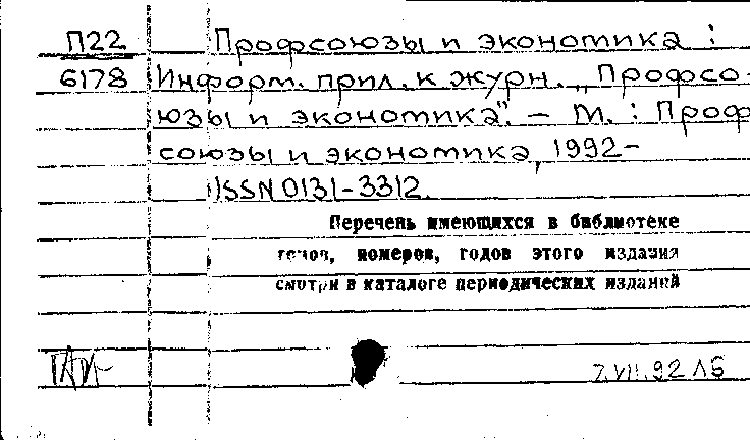 П22 Профсоюзы и экономика :
6178 Информ. прил. к журн. „Профсо-
юзы и экономика". – М. : Проф
союзы и экономика, 1992–
ISSN 0131-3312.
Перечень имеющихся в библиотеке
томов, номеров, годов этого издания
смотри в каталоге периодических изданий
7.VII.92 ЛБ